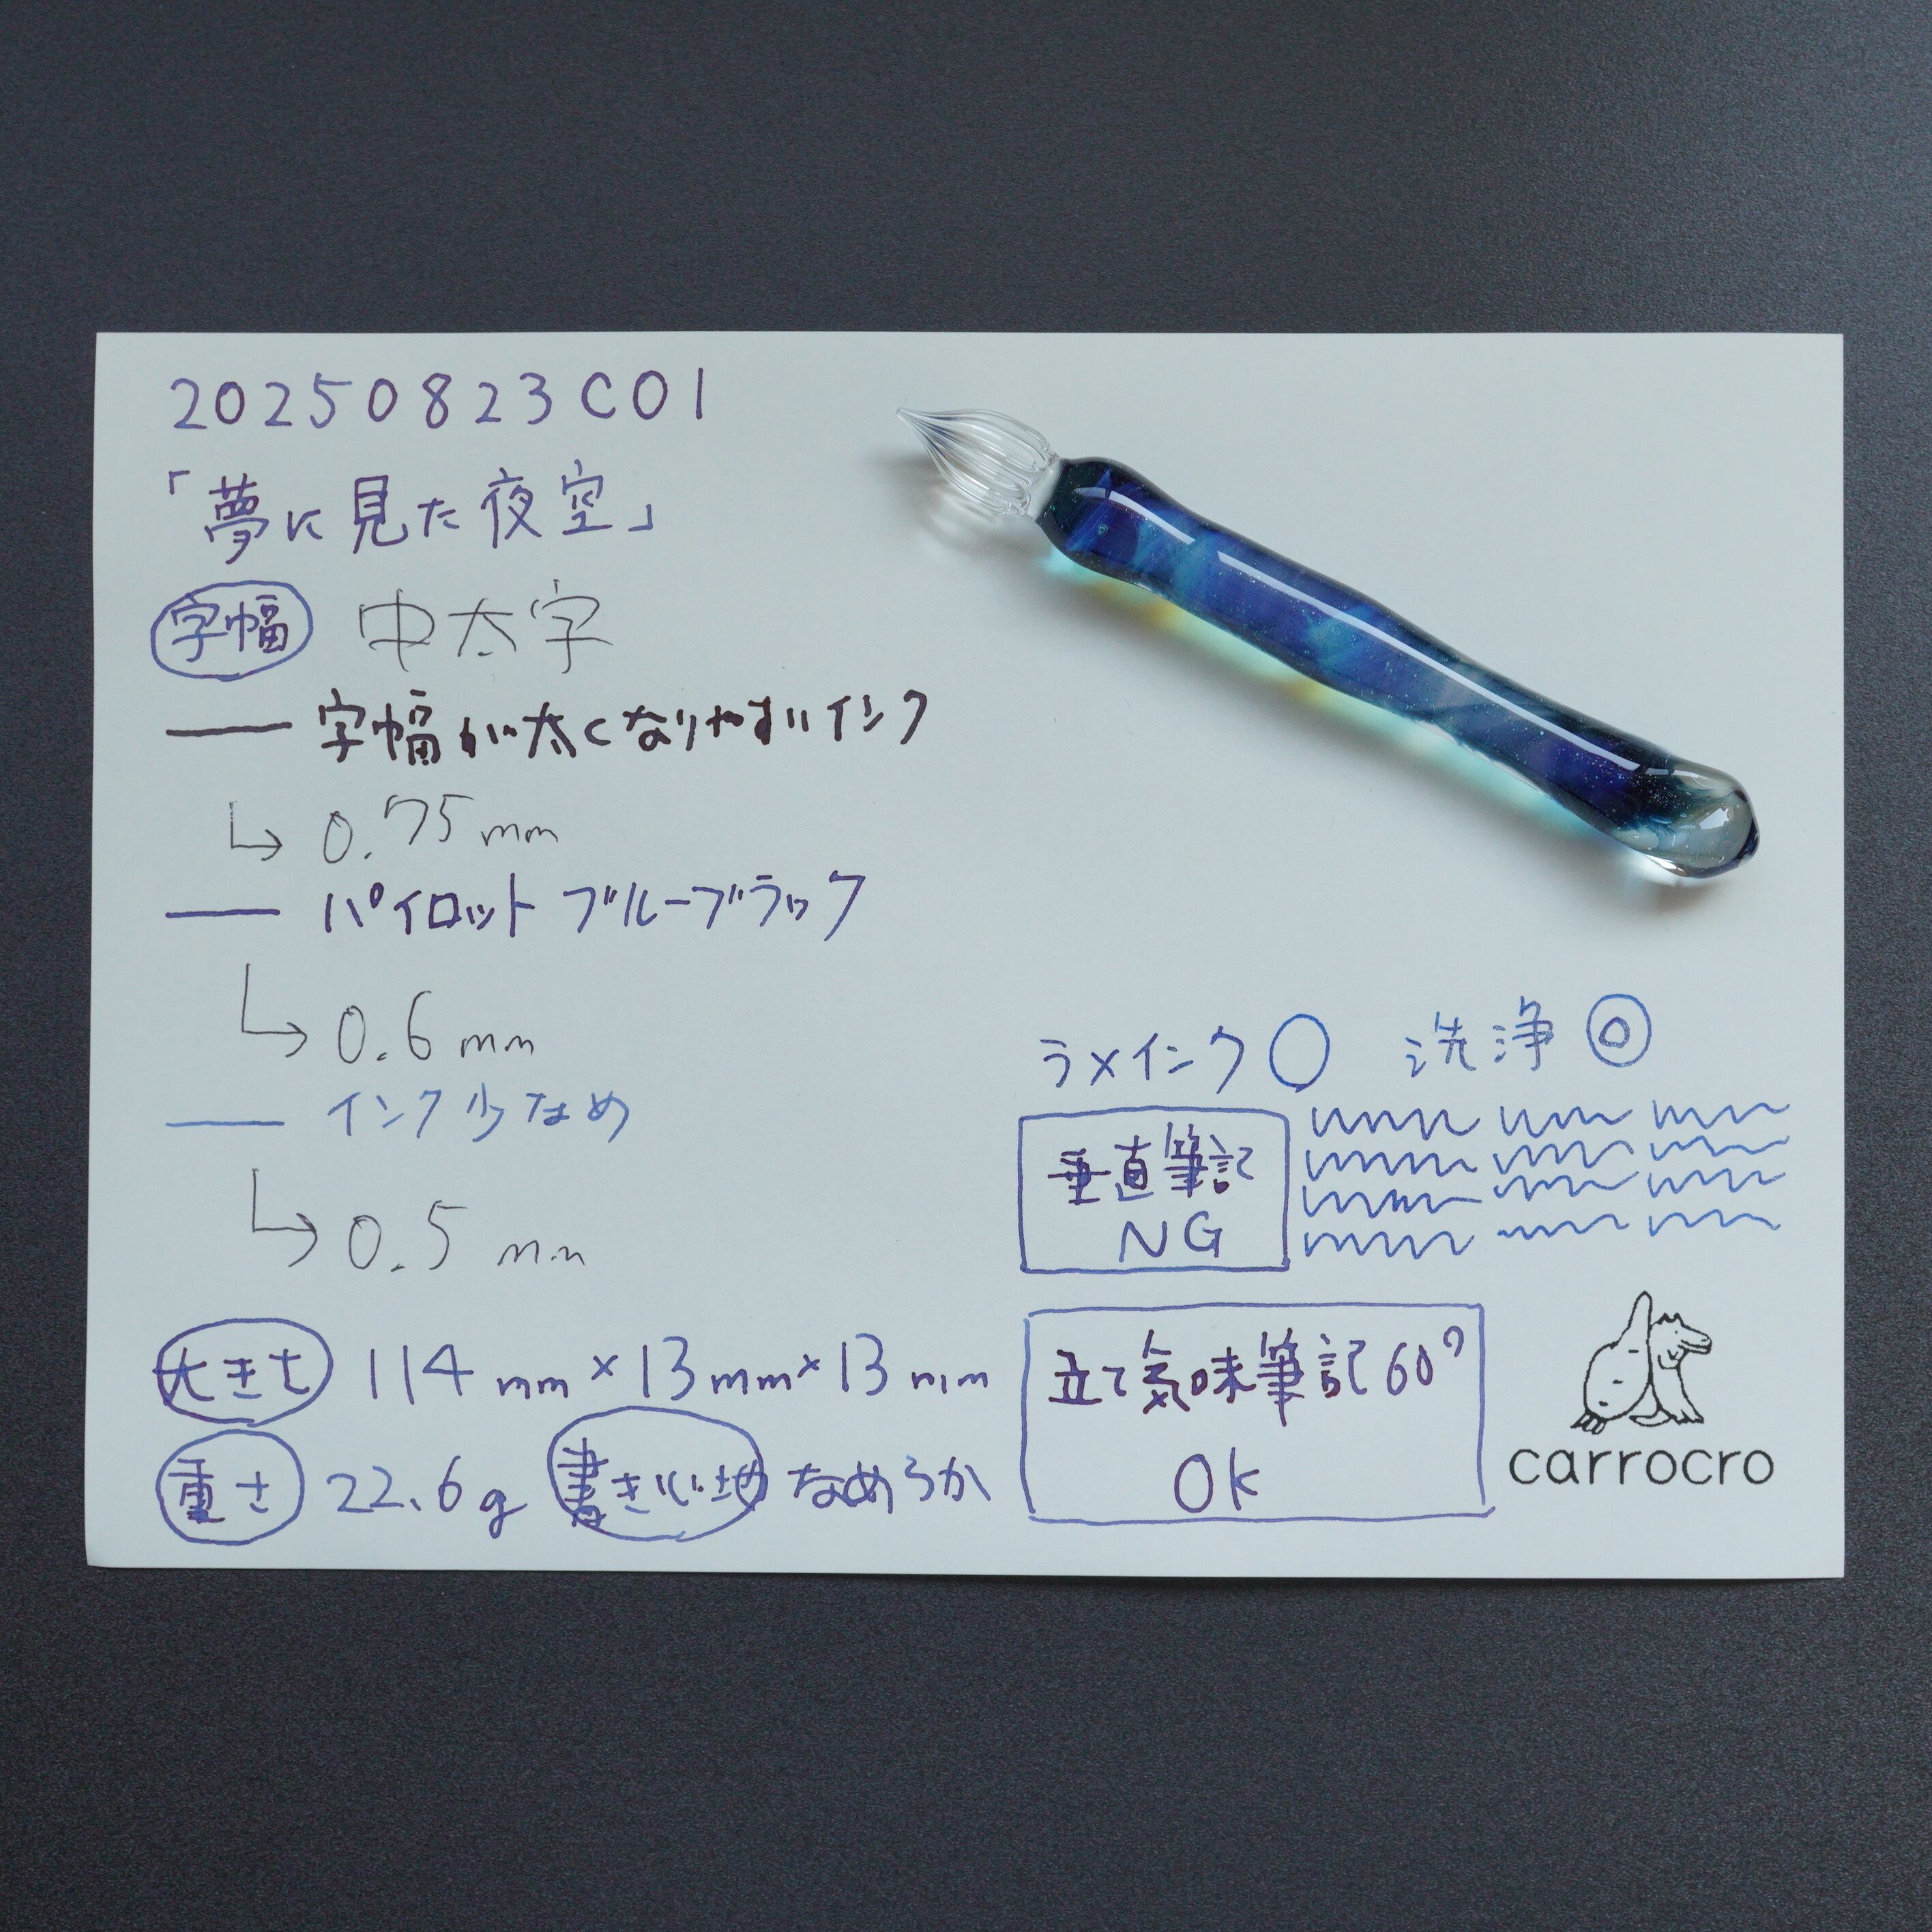 20250823C01
「夢に見た夜空」
字幅 中太字
字幅が太くなりやすいインク
0.75mm
パイロット ブルーブラック
0.6mm
インク少なめ
0.5mm
大きさ 114mm×13mm×13mm
重さ 22.6g 書き心地 なめらか
ラメインク◯ 洗浄◎
垂直筆記
NG
立て気味筆記60°
OK
carrocro